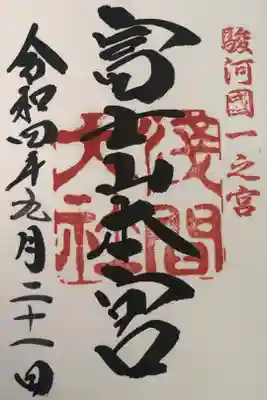 駿河國一之宮
富士山本宮
浅間大社
令和四年九月二十一日